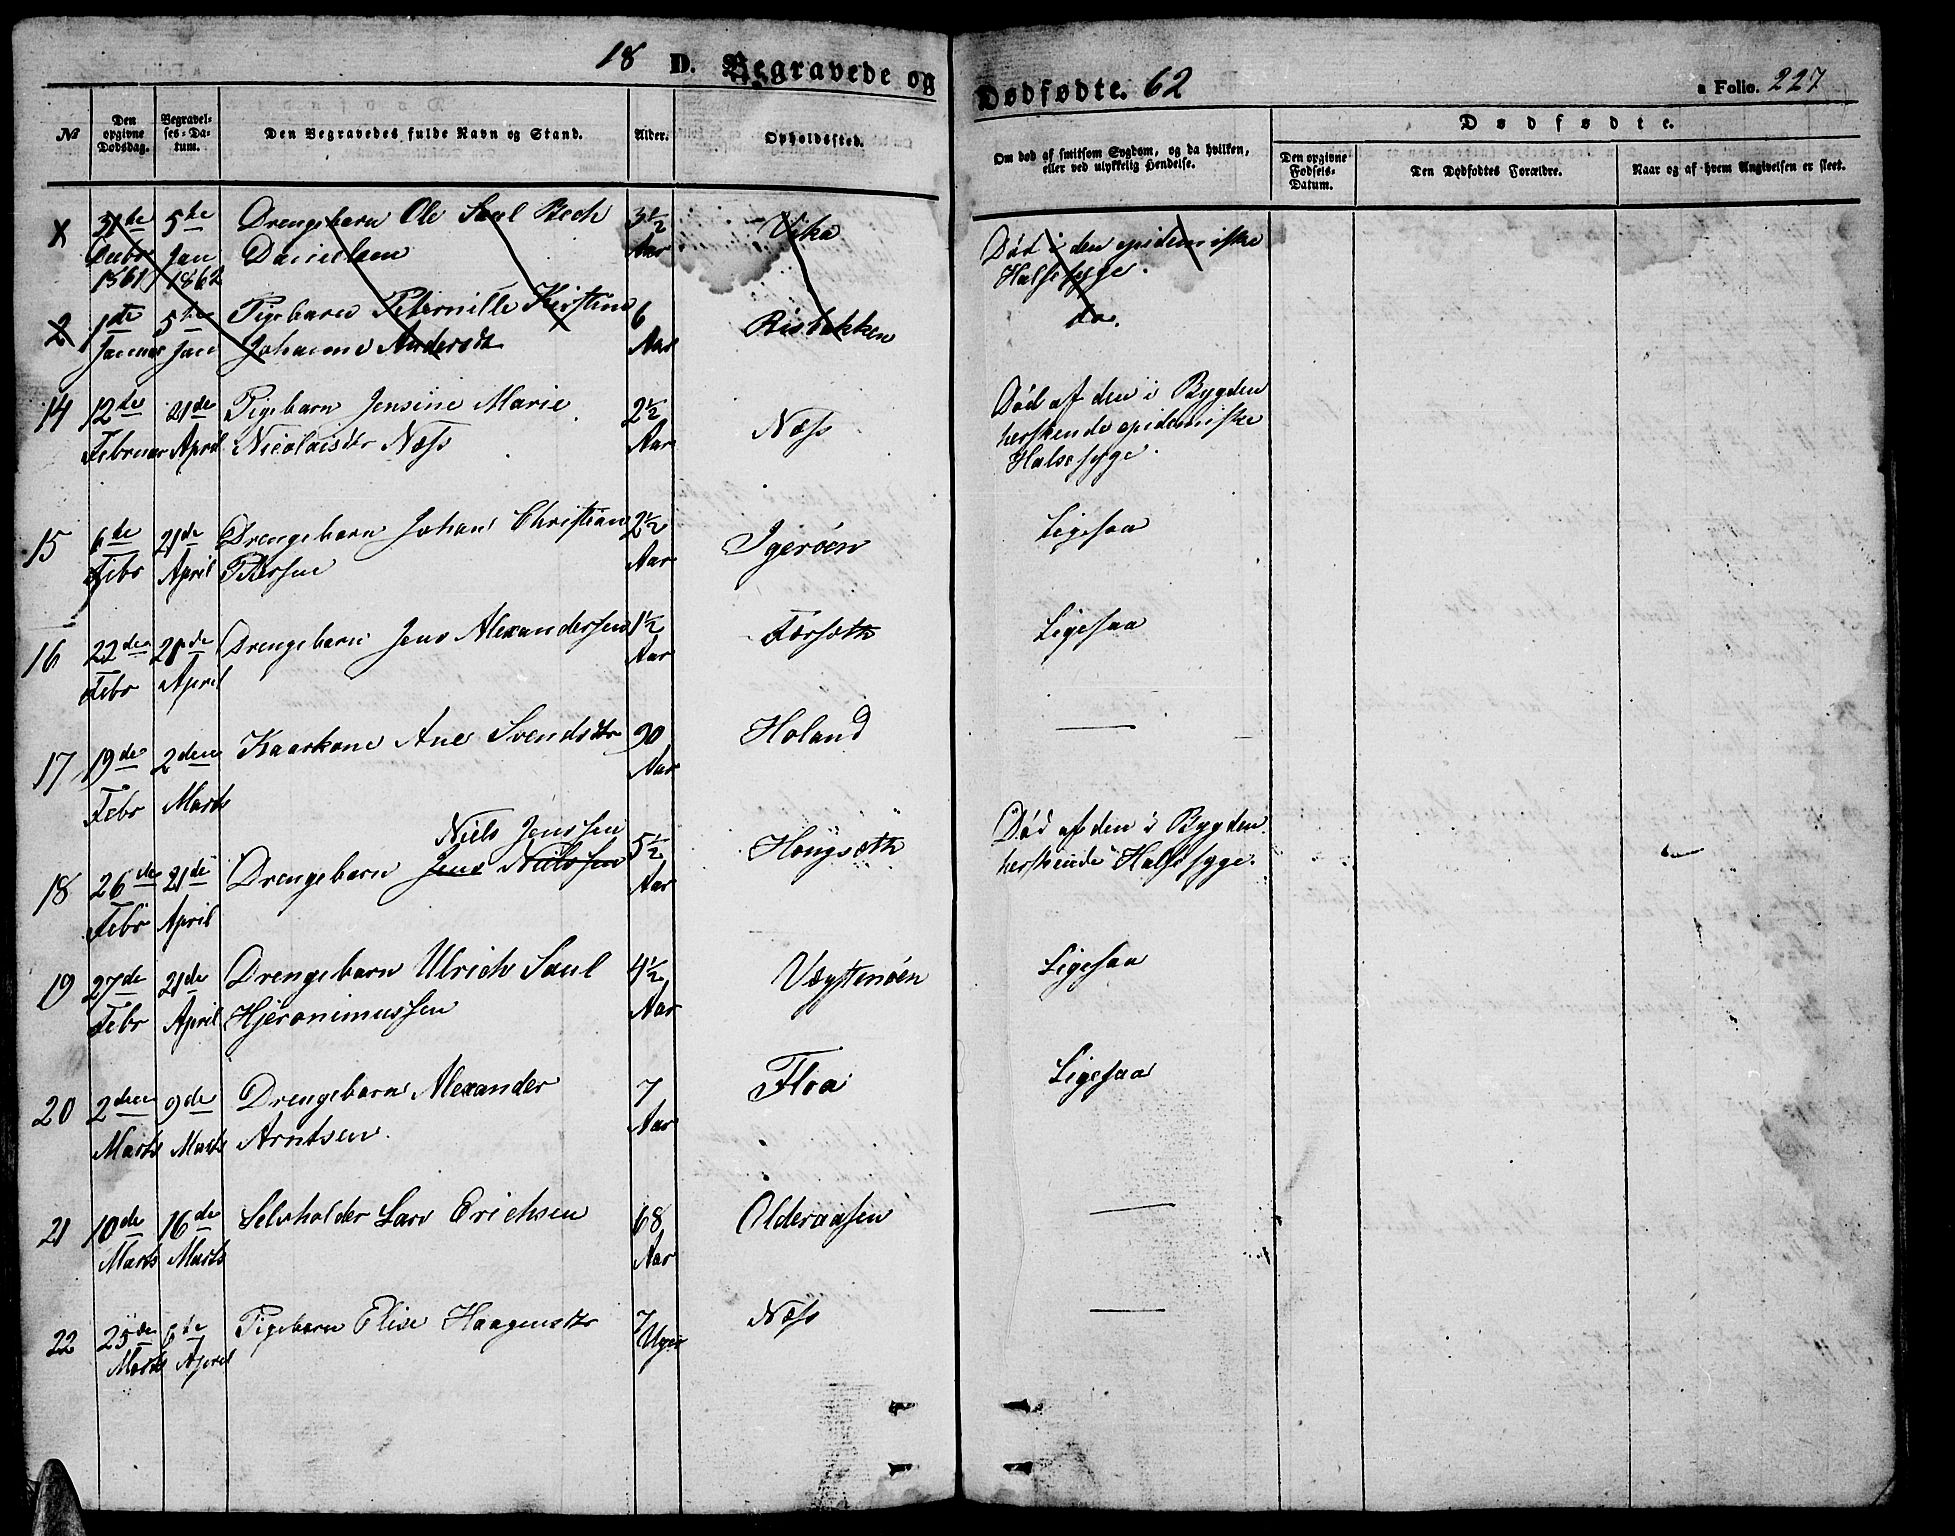 18 D. Begravede og Dødfødte. 62 a Folio. 227
№ Den opgivne Dødsdag. Begravelses-Datum. Den Begravedes fulde Navn og Stand. Alder. Opholdssted. Om død af smitsom Sygdom, og da hvilken, eller ved ulykkelig Hendelse. Dødfødte.
Den opgivne Fødsels-Datum. Den Dødfødtes Forældre. Naar og af hvem Angivelsen er skeet.
1 31te 5te Drengebarn Ole Saul Bech 3½ Vika Død i den epidemiske
Decbr 1861 Jan 1862 Danielsen Aar Halssyge.
2 1ste 5te Pigebarn Peternille Kirstine 6 Risbakken do.
Januar Jan Johanne Andersdtr Aar
14 12te 21de Pigebarn Jensine Marie 2½ Næss Død af den i Bygden
Februar April Nicolaisdtr Næss Aar herskende epidemiske
Halssyge.
15 6te 21de Drengebarn Johan Christian 2½ Igerøen Ligesaa
Febr April Petersen Aar
16 22den 21de Drengebarn Jens Alexandersen 1½ Forsæth Ligesaa
Febr April Aar
17 19de 2den Kaarkone Ane Svendsdtr 90 Holand —
Febr Marts Aar
Niels Jenssen
18 26de 21de Drengebarn Jens Nielssen 5½ Høugsæth Død af den i Bygden
Febr April Aar herskende Halssyge.
19 27de 21de Drengebarn Ulrich Saul 4½ Vægstenøen Ligesaa
Febr April Hjeronimussen Aar
20 2den 9de Drengebarn Alexander 7 Floa Ligesaa
Marts Marts Arntsen. Aar
21 10de 16de Selvholder Lars Erichsen 68 Olderaasen —
Marts Marts Aar
22 25de 6te Pigebarn Elise Haagensdtr 7 Næss —
Marts April Uger